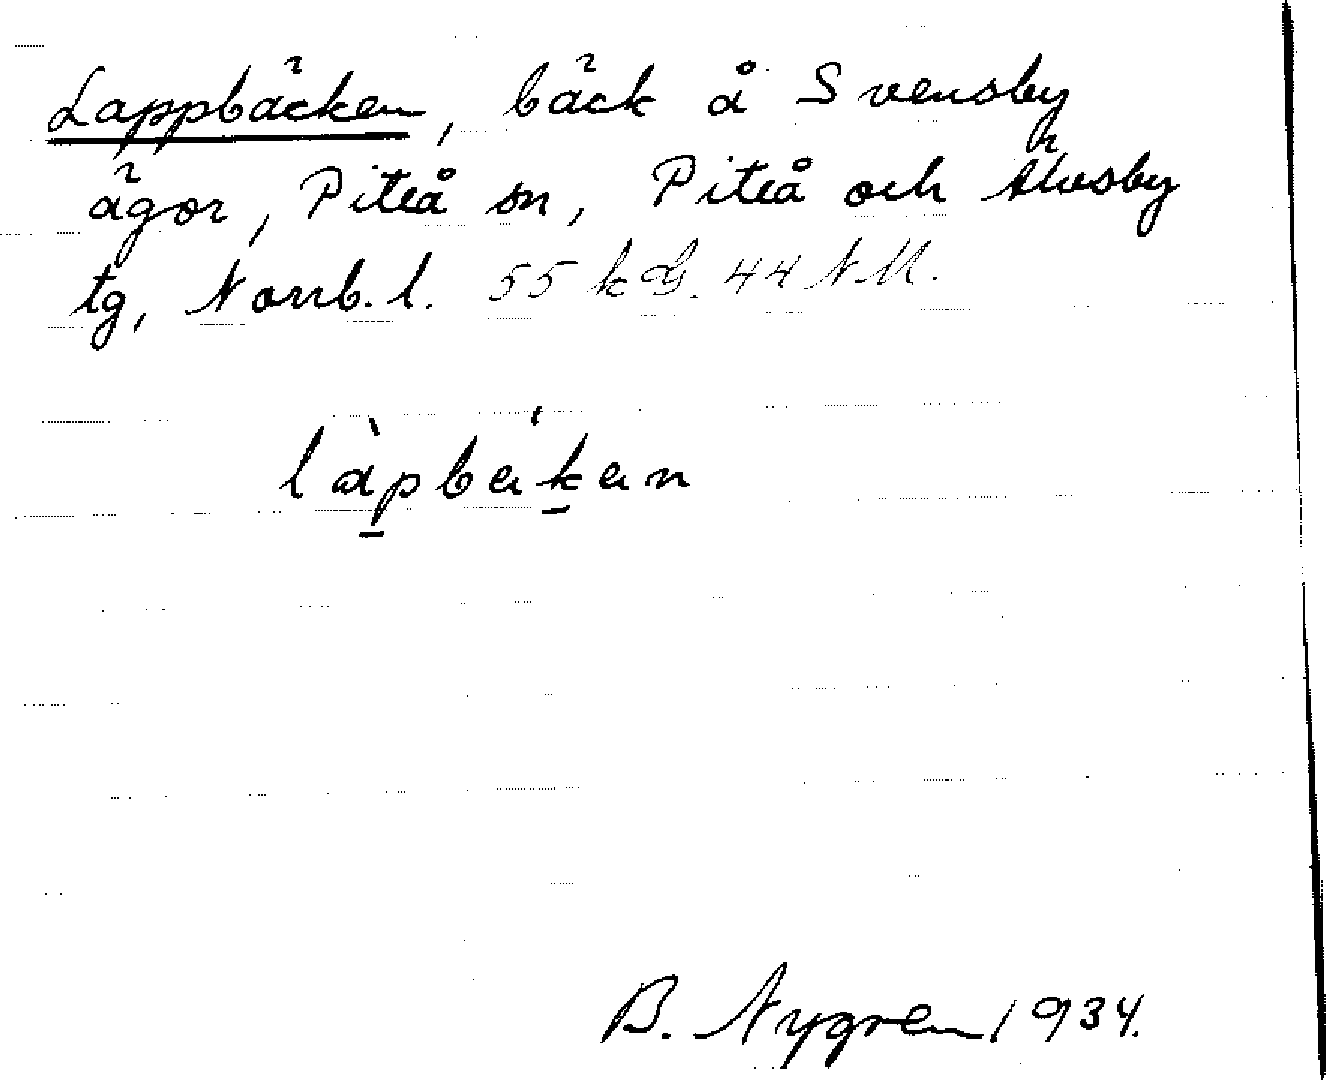 Lappbäcken, bäck å Svensby
ägor, Piteå sn, Piteå och Älvsby
tg, Norrb. l. 55 k d. 44 N M.
làpbäken
B. Nygren 1934.